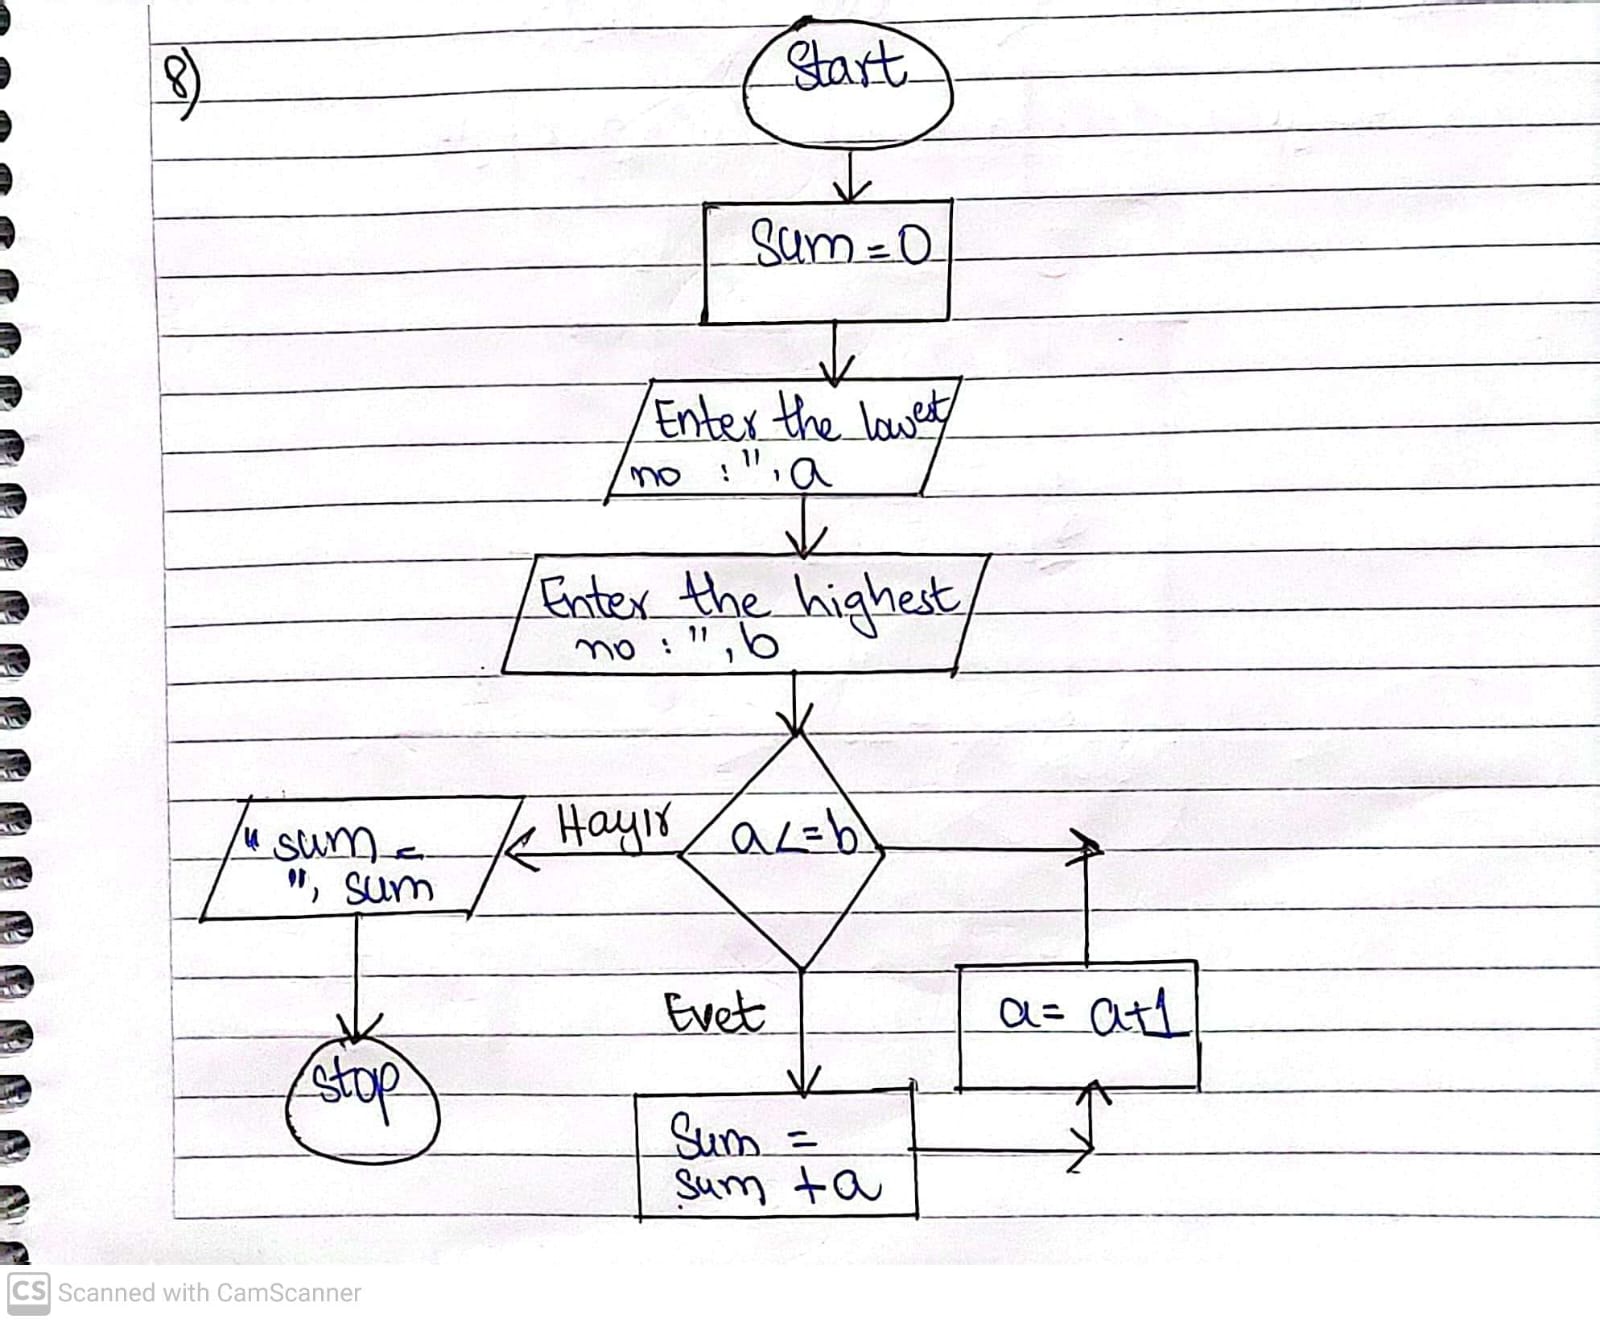 8)
Start
Sum = 0
Enter the lowest
no : ", a
Enter the highest
no : ", b
a <= b
Hayır
" sum =
", sum
stop
Evet
Sum =
sum + a
a = a+1
CS Scanned with CamScanner